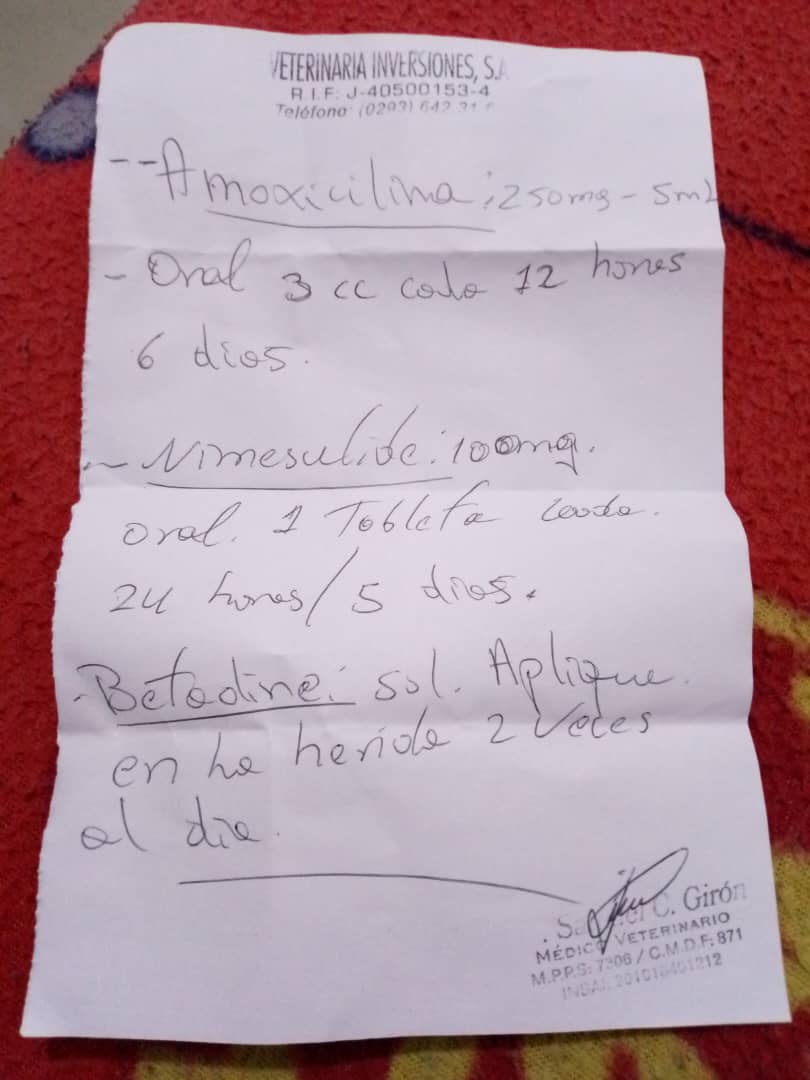 VETERINARIA INVERSIONES, S.A
R.I.F: J-40500153-4
Teléfono: (0293) 642
--Amoxicilina: 250mg - 5ml
- Oral 3 cc cada 12 horas
6 días.
- Nimesulide: 100mg.
oral. 1 Tableta cada.
24 horas/5 días.
- Betadine: sol. Aplique.
en la herida 2 Veces
al día.
C. Girón
MÉDICO VETERINARIO
M.P.P.S: 7306 / C.M.D.F: 871
INSAI: